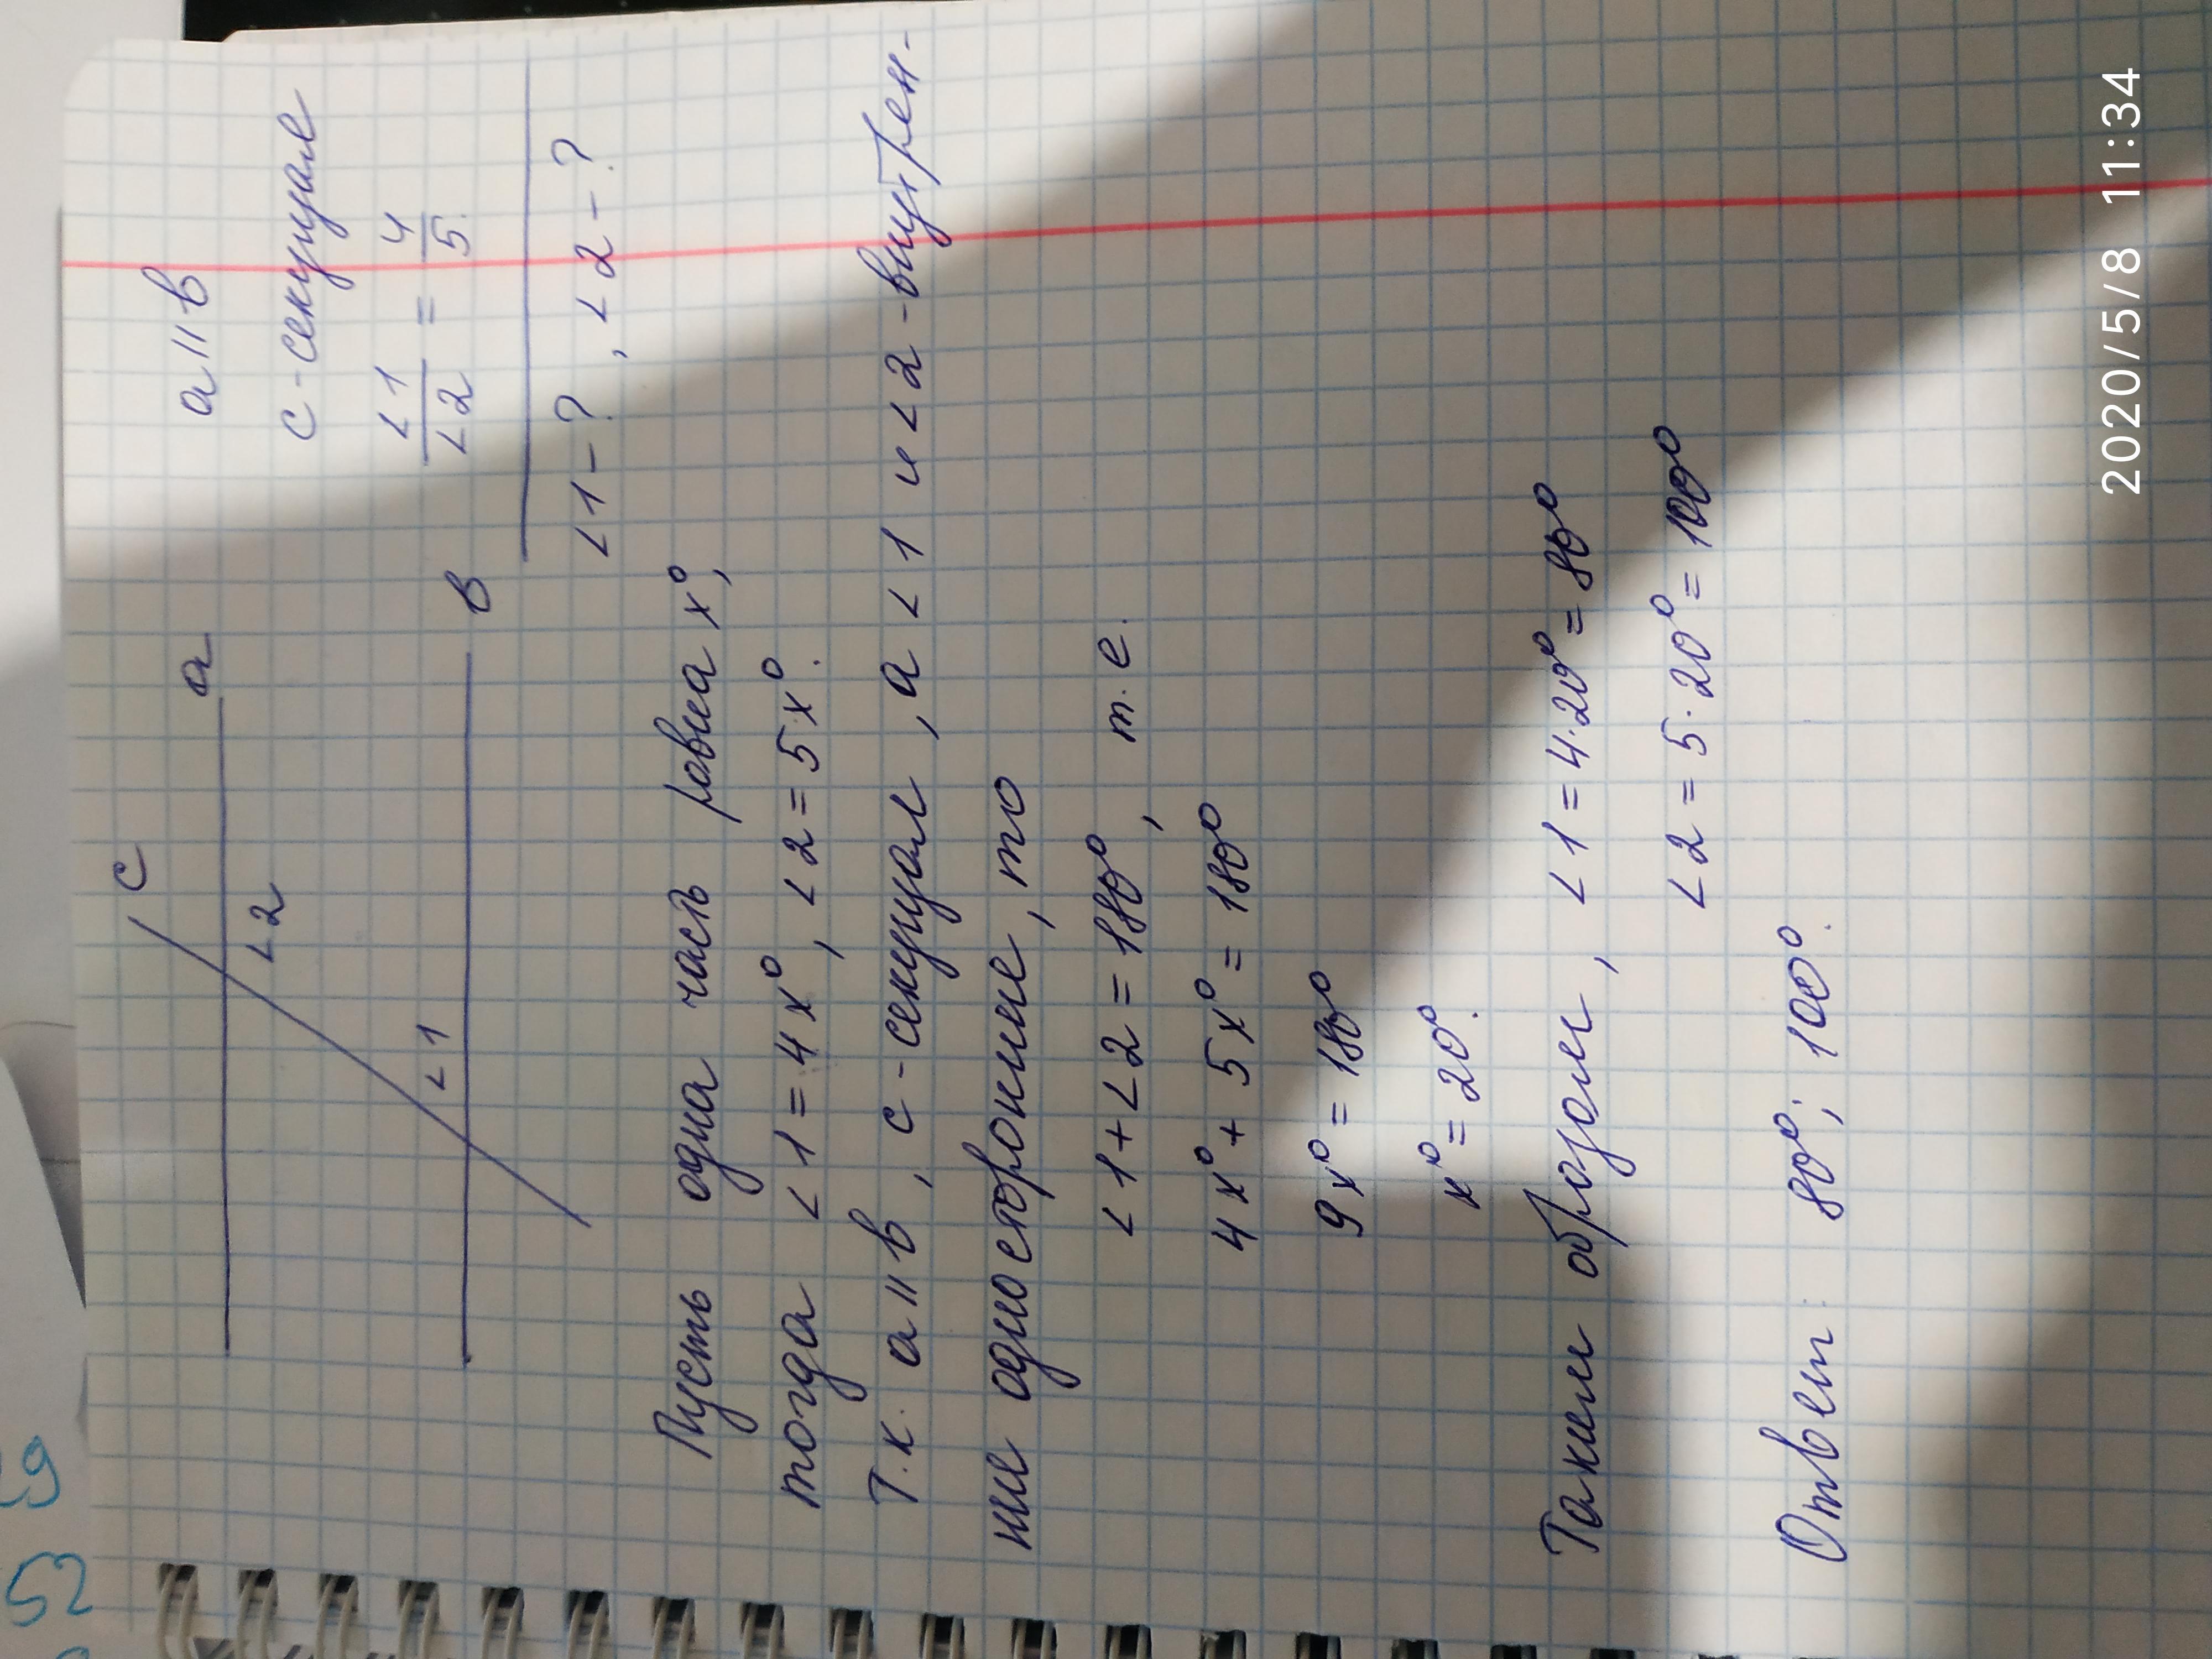 c
a
∠2
∠1
в
a || в
c - секущая
∠1/∠2 = 4/5.
∠1 - ?, ∠2 - ?
Пусть одна часть равна x°,
тогда ∠1 = 4x°, ∠2 = 5x°.
Т.к. a || в, c - секущая, а ∠1 и ∠2 - внутрен-
ние односторонние, то
∠1 + ∠2 = 180°, т.е.
4x° + 5x° = 180°
9x° = 180°
x° = 20°.
Таким образом, ∠1 = 4·20° = 80°
∠2 = 5·20° = 100°
Ответ: 80°; 100°.
29
52
2020/5/8 11:34